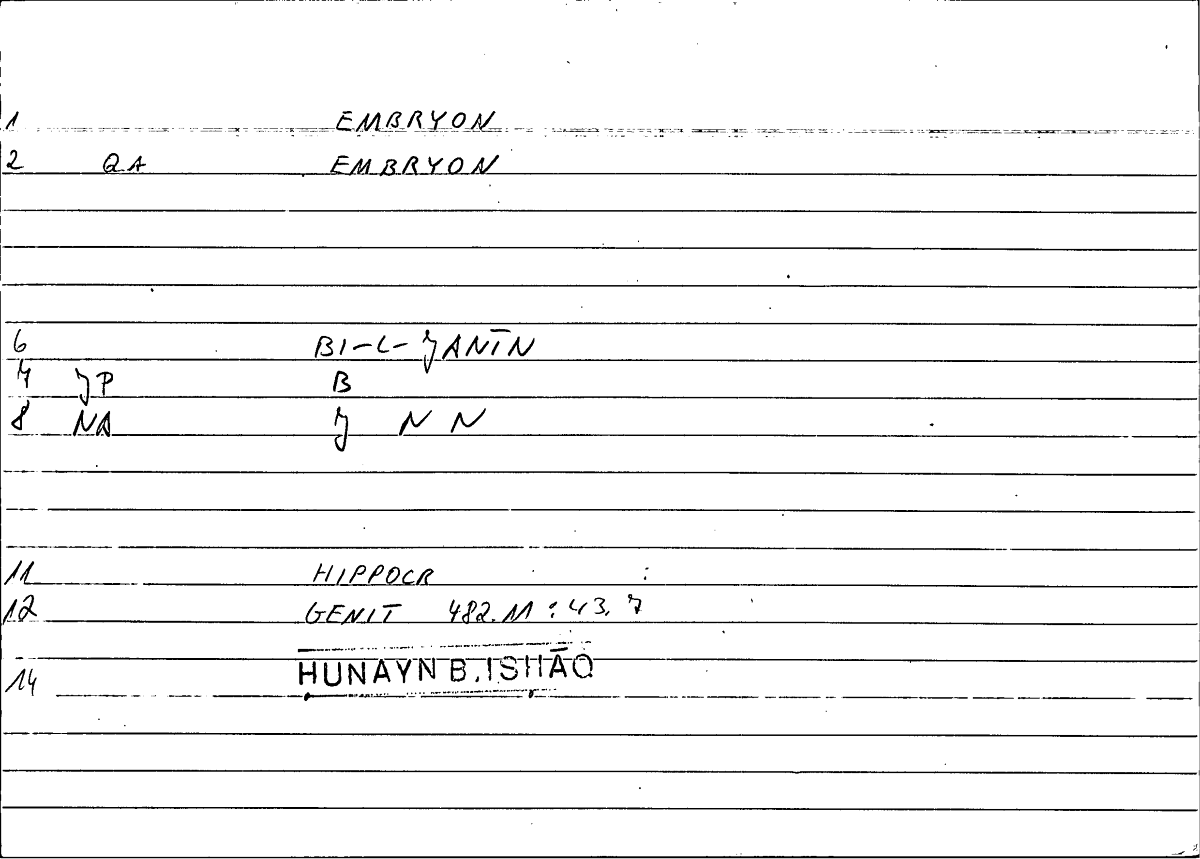 1 EMBRYON
2 QA EMBRYON
6 BI-L-JANĪN
7 JP B
8 NA J N N
11 HIPPOCR :
12 GENIT 482.11 : 43.7
14 ḤUNAYN B. ISḤĀQ